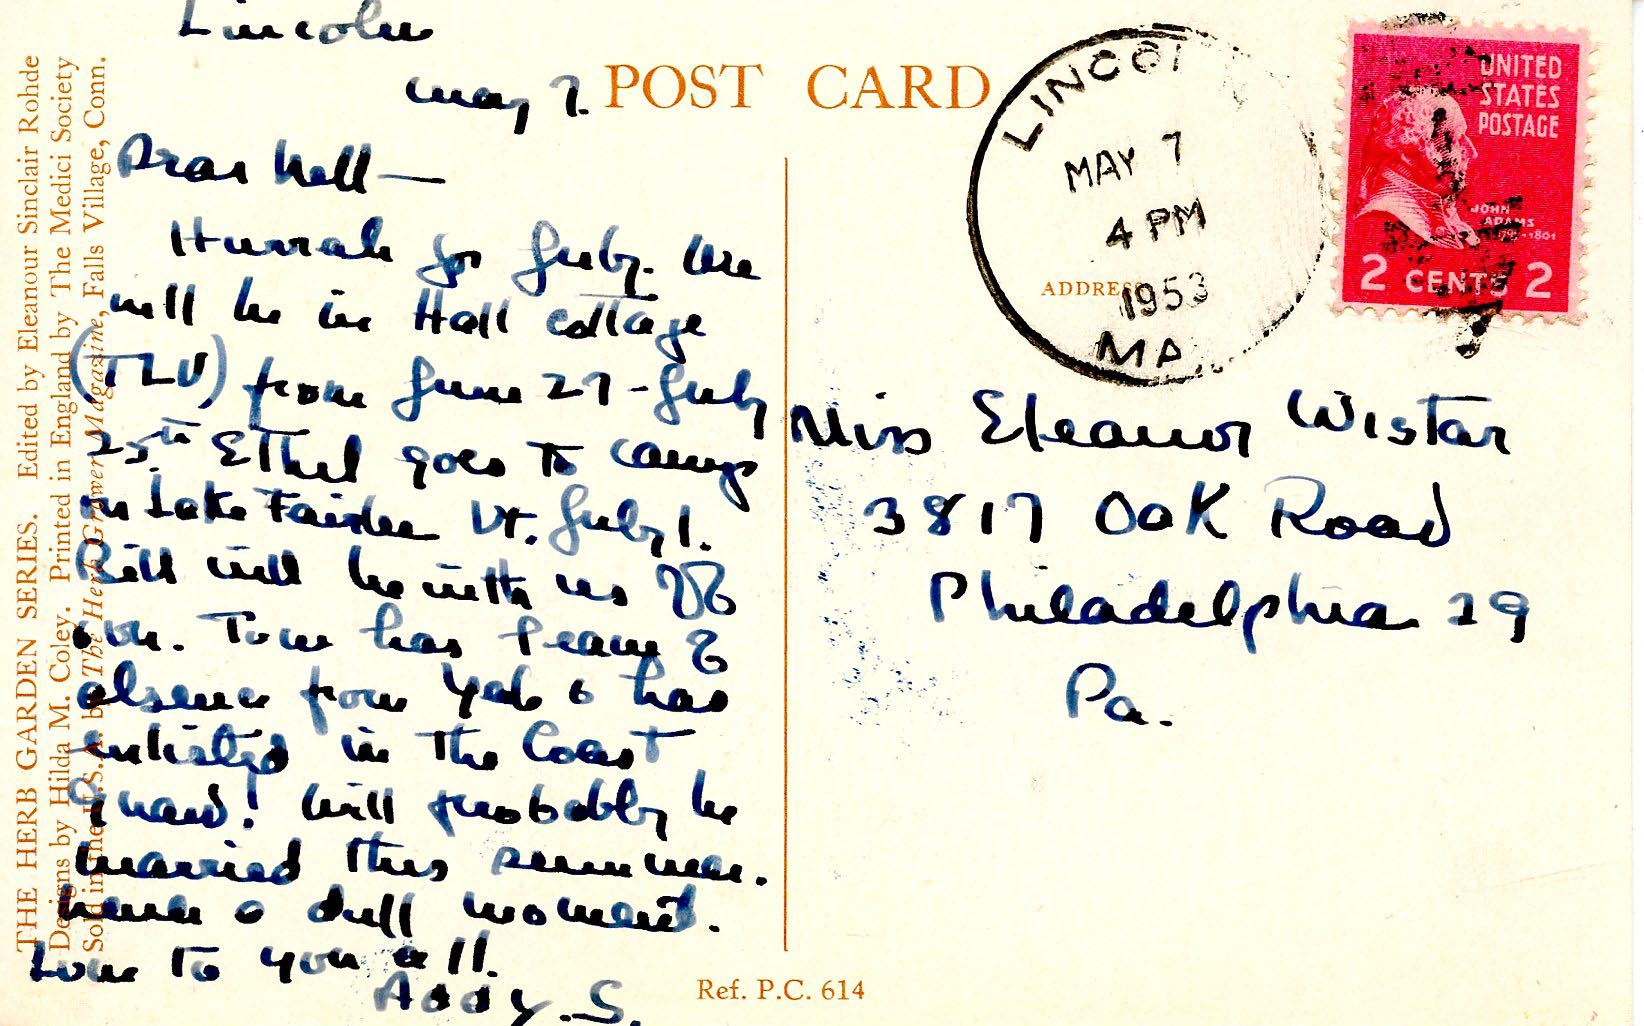 Lincoln
May 7.
Dear Nell—
Hurrah for July. We
will be in Hall cottage
(TLV) from June 27 - July
25th. Ethel goes to camp
on Lake Fairlee Vt. July 1.
Bill will be with us
on. Tom has leave of
absence from Yale & has
enlisted in the Coast
Guard! Will probably be
married this summer.
Never a dull moment.
Love to you all.
Addy. S.
POST CARD
ADDRESS
Miss Eleanor Wistar
3817 Oak Road
Philadelphia 29
Pa.
LINCOL
MAY 7
4 PM
1953
MA
UNITED
STATES
POSTAGE
JOHN
ADAMS
1797-1801
2 CENTS 2
THE HERB GARDEN SERIES. Edited by Eleanour Sinclair Rohde
Designs by Hilda M. Coley. Printed in England by The Medici Society
Sold in the U.S.A. by The Herb Grower Magazine, Falls Village, Conn.
Ref. P.C. 614